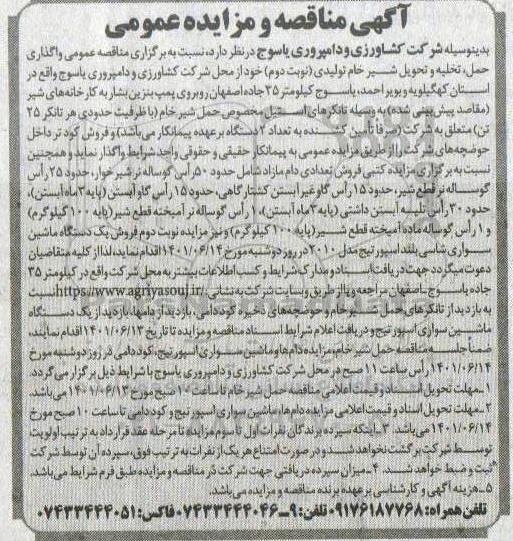 آگهی مناقصه و مزایده عمومی
بدینوسیله شرکت کشاورزی و دامپروری یاسوج در نظر دارد، نسبت به برگزاری مناقصه عمومی واگذاری
حمل، تخلیه و تحویل شیر خام تولیدی (نوبت دوم) خود از محل شرکت کشاورزی و دامپروری یاسوج واقع در
استان کهگیلویه و بویر احمد، یاسوج کیلومتر ۳۵ جاده اصفهان روبروی پمپ بنزین بشار به کارخانه‌های شیر
(مقاصد پیش بینی شده) به وسیله تانکر های استیل مخصوص حمل شیر خام (با ظرفیت حدودی هر تانکر ۲۵
تن) متعلق به شرکت (صرفا تأمین کشنده به تعداد ۲ دستگاه بر عهده پیمانکار می‌باشد) و فروش کود تر داخل
حوضچه‌های شرکت را از طریق مزایده عمومی به پیمانکار حقیقی و حقوقی واجد شرایط واگذار نماید و همچنین
نسبت به برگزاری مزایده کتبی فروش تعدادی دام مازاد شامل حدود ۵۰ رأس گوساله نر شیر خوار، حدود ۲۵ رأس
گوساله نر قطع شیر، حدود ۱۵ رأس گاو غیر آبستن کشتارگاهی، حدود ۱۵ رأس گاو آبستن (پایه ۳ ماه آبستن)،
حدود ۳۰ رأس تلیسه آبستن داشتی (پایه ۳ ماه آبستن)، ۱ رأس گوساله نر آمیخته قطع شیر (پایه ۱۰۰ کیلوگرم)
و ۱ رأس گوساله ماده آمیخته قطع شیر (پایه ۱۰۰ کیلوگرم) و نیز مزایده نوبت دوم فروش یک دستگاه ماشین
سواری شاسی بلند اسپورتیج مدل ۲۰۱۰ در روز دوشنبه مورخ ۱۴۰۱/۰۶/۱۴ اقدام نماید، لذا از کلیه متقاضیان
دعوت میگردد جهت دریافت اسناد و مدارک شرایط و کسب اطلاعات بیشتر به محل شرکت واقع در کیلومتر ۳۵
جاده یاسوج - اصفهان مراجعه و یا از طریق وبسایت شرکت به نشانی https://www.agriyasouj.ir/ نسبت
به بازدید از تانکر های حمل شیر خام و حوضچه‌های ذخیره کود دامی، بازدید از دامها، بازدید از یک دستگاه
ماشین سواری اسپورتیج و دریافت اعلام شرایط اسناد مناقصه و مزایده تا تاریخ ۱۴۰۱/۰۶/۱۳ اقدام نمایند،
ضمناً جلسه مناقصه حمل شیر خام، مزایده دام ها و ماشین سواری اسپورتیج، کود دامی در روز دوشنبه مورخ
۱۴۰۱/۰۶/۱۴ رأس ساعت ۱۱ صبح در محل شرکت کشاورزی و دامپروری یاسوج با شرایط ذیل برگزار می گردد.
۱- مهلت تحویل اسناد و قیمت اعلامی مناقصه حمل شیر خام تا ساعت ۱۰ صبح مورخ ۱۴۰۱/۰۶/۱۳ می باشد.
۲- مهلت تحویل اسناد و قیمت اعلامی مزایده دام ها، ماشین سواری اسپورتیج و کود دامی تا ساعت ۱۰ صبح مورخ
۱۴۰۱/۰۶/۱۴ می باشد. ۳- اینکه سپرده برندگان نفرات اول تا سوم مزایده تا مرحله عقد قرار داد به ترتیب اولویت
توسط شرکت برگشت نخواهد شد و در صورت امتناع هر یک از نفرات به ترتیب فوق، سپرده آن توسط شرکت
ثبت و ضبط خواهد شد. ۴- میزان سپرده دریافتی جهت شرکت در مناقصه و مزایده طبق فرم شرایط می باشد.
۵- هزینه آگهی و کارشناسی بر عهده برنده مناقصه و مزایده می باشد.
تلفن همراه: ۰۹۱۷۶۱۸۷۷۶۸ تلفن: ۹-۰۷۴۳۳۴۴۴۰۴۶ فاکس: ۰۷۴۳۳۴۴۴۰۵۱